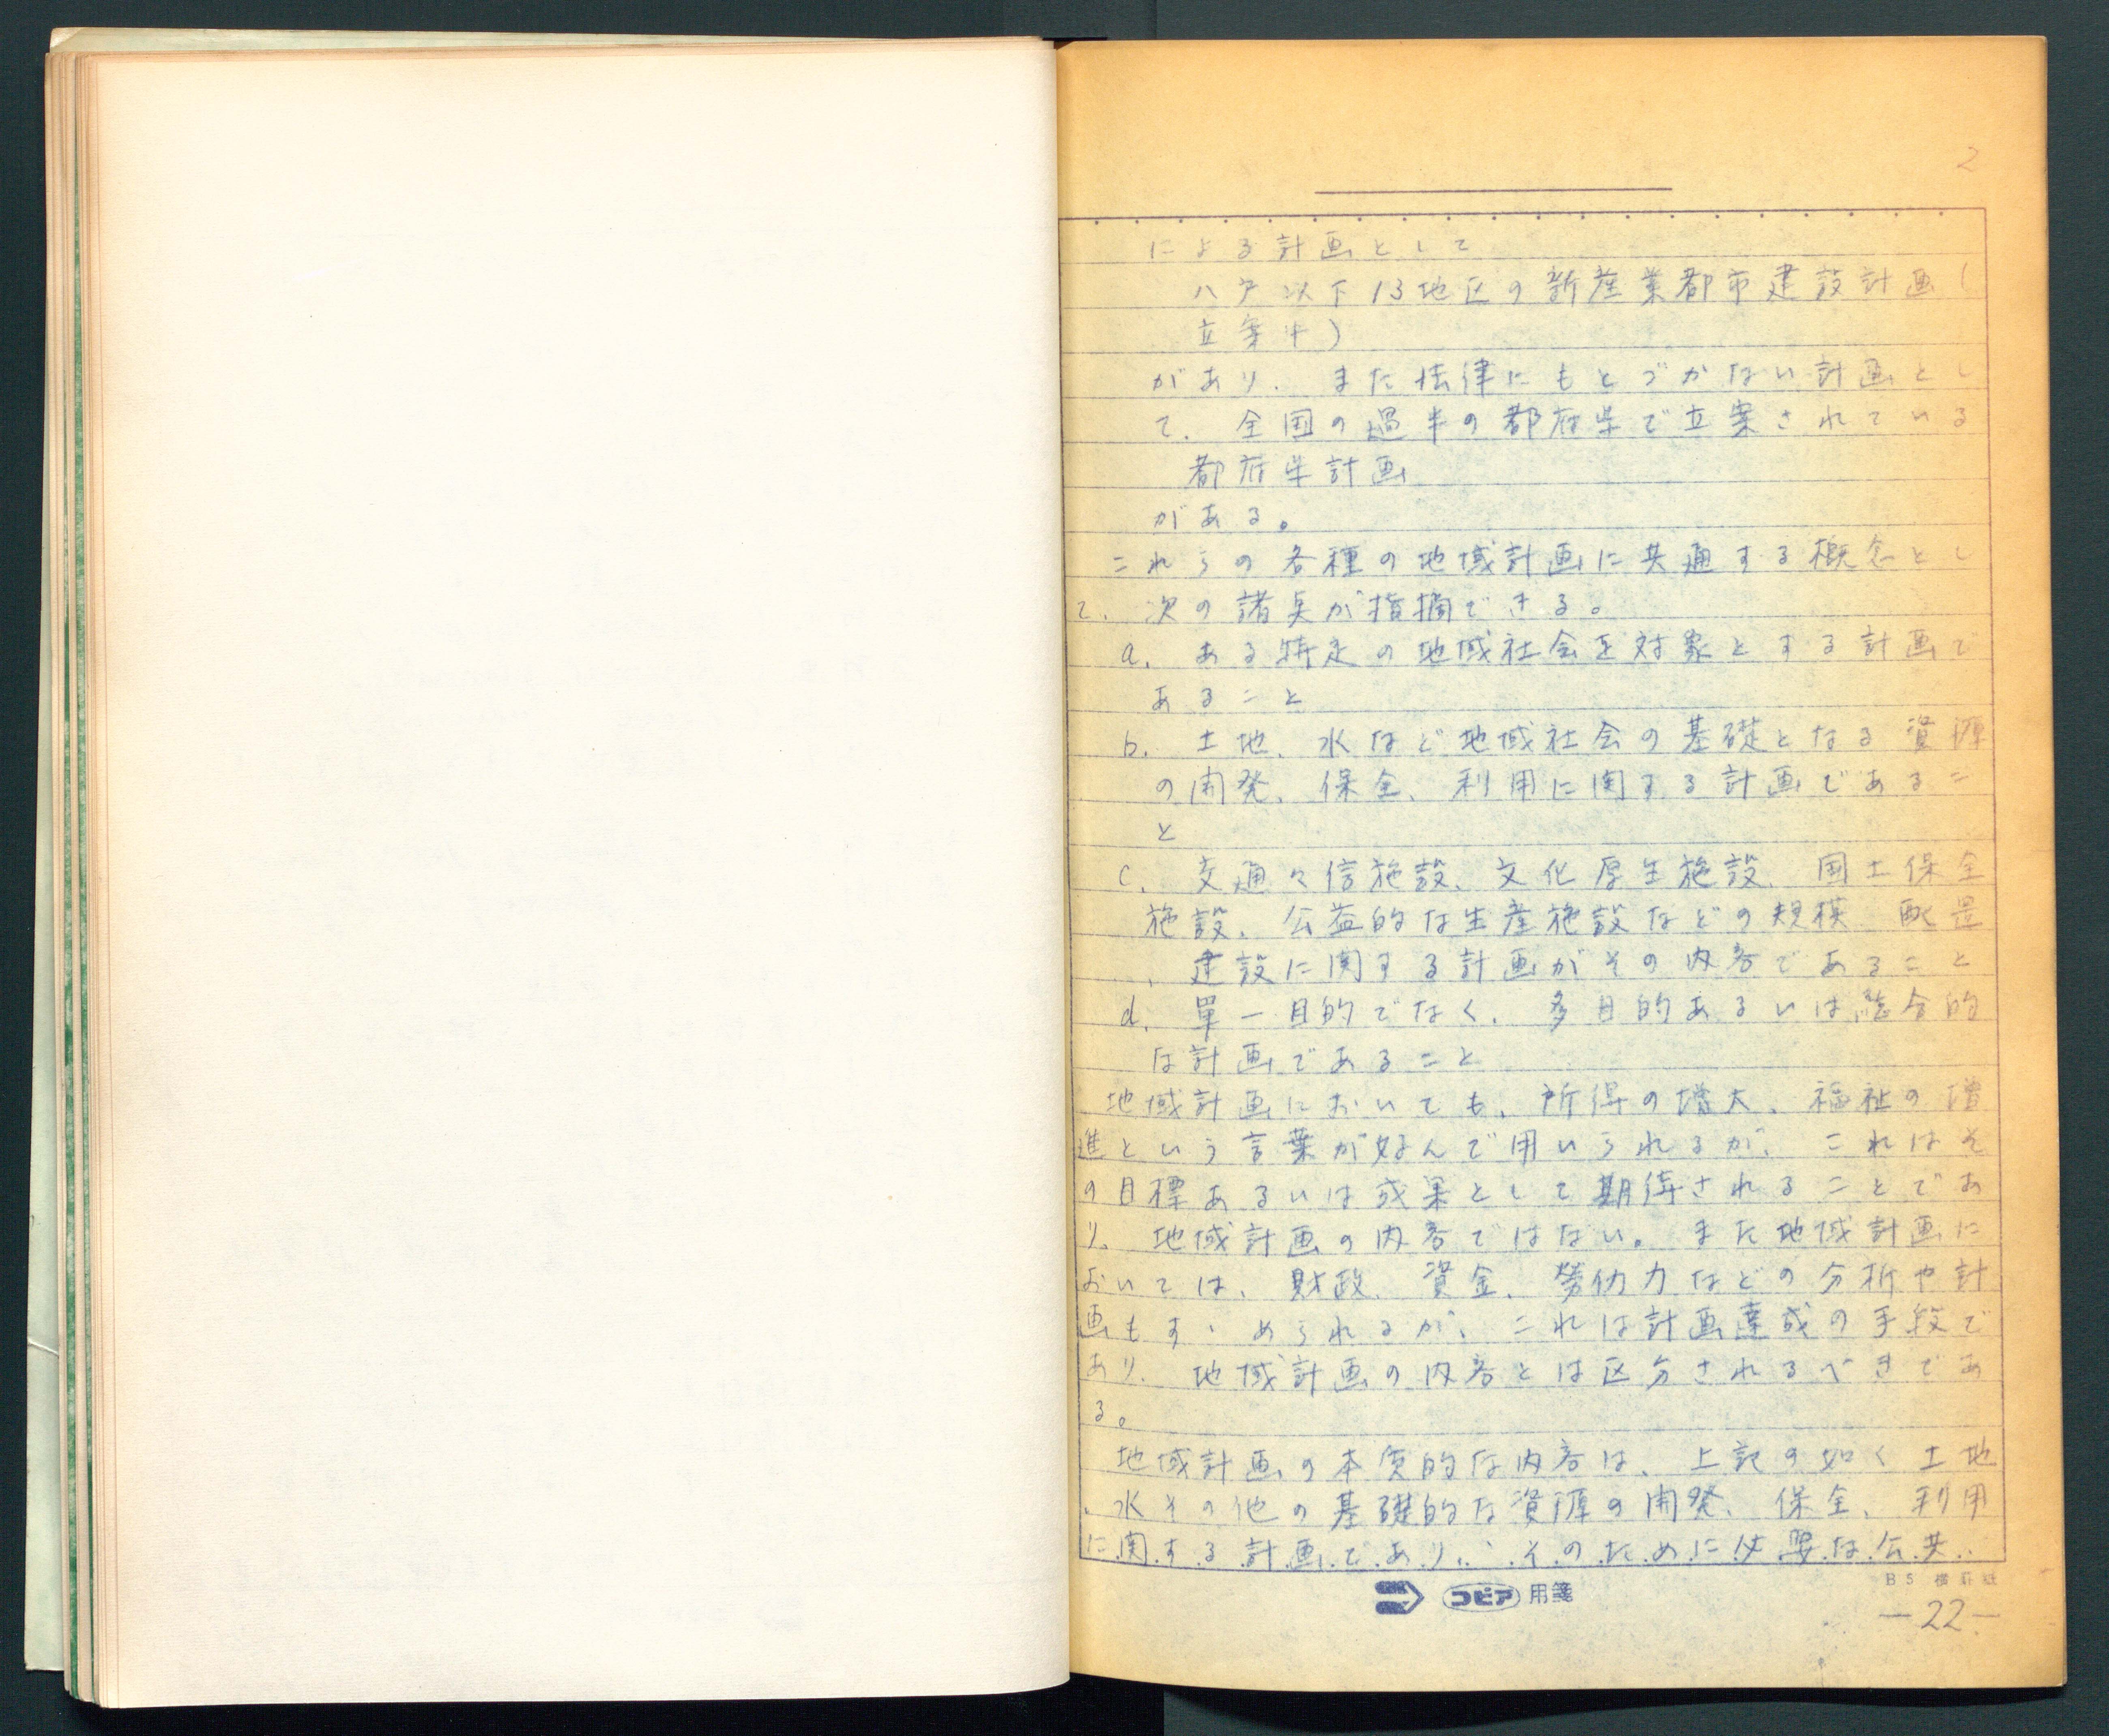 2
による計画として
八戸以下13地区の新産業都市建設計画(
立案中)
があり、また法律にもとづかない計画とし
て、全国の過半の都府県で立案されている
都府県計画
がある。
これらの各種の地域計画に共通する概念とし
て、次の諸点が指摘できる。
a. ある特定の地域社会を対象とする計画で
あること
b. 土地、水など地域社会の基礎となる資源
の開発、保全、利用に関する計画であるこ
と
c. 交通々信施設、文化厚生施設、国土保全
施設、公益的な生産施設などの規模、配置
、建設に関する計画がその内容であること
d. 単一目的でなく、多目的あるいは総合的
な計画であること
地域計画においても、所得の増大、福祉の増
進という言葉が好んで用いられるが、これはそ
の目標あるいは成果として期待されることであ
り、地域計画の内容ではない。また地域計画に
おいては、財政、資金、労働力などの分析や計
画もすゝめられるが、これは計画達成の手段で
あり、地域計画の内容とは区分されるべきであ
る。
地域計画の本質的な内容は、上記の如く土地
、水その他の基礎的な資源の開発、保全、利用
に関する計画であり、そのために必要な公共
コピア用箋
B5 横罫紙
—22—